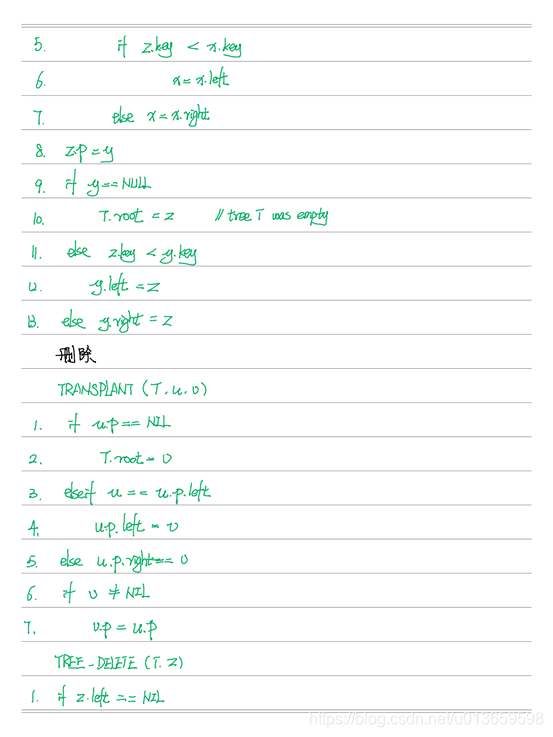 5. if z.key < x.key
6. x = x.left
7. else x = x.right
8. z.p = y
9. if y == NULL
10. T.root = z // tree T was empty
11. else z.key < y.key
12. y.left = z
13. else y.right = z
删除
TRANSPLANT (T, u, v)
1. if u.p == NIL
2. T.root = v
3. elseif u == u.p.left
4. u.p.left = v
5. else u.p.right == v
6. if v ≠ NIL
7. v.p = u.p
TREE-DELETE (T, z)
1. if z.left == NIL
https://blog.csdn.net/u013659598